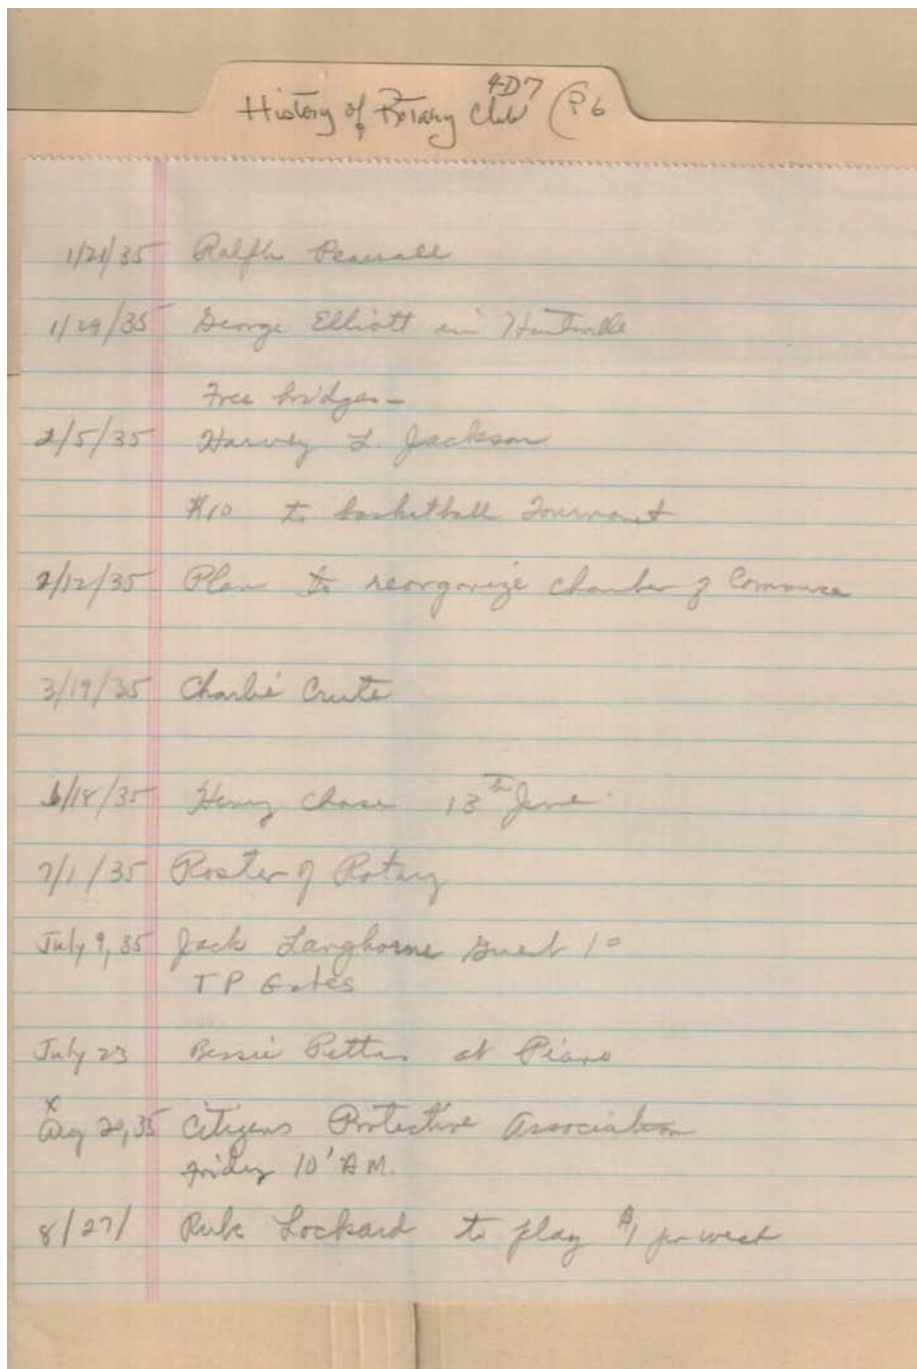 4-D7
History of Rotary Club (P6
1/21/35 Ralph
1/29/35 George Elliott in Huntsville
Free bridges -
2/5/35 Harvey L. Jackson
$10 to basketball
2/12/35 Plan to reorganize chamber of Commerce
3/19/35 Charlie Crute
6/18/35 Henry Chase 13th June
7/1/35 Roster of Rotary
July 9, 35 Jack Langhorne Guest
TP Gates
July 23 Bessie Pettus at Piano
x
Aug 20, 35 Citizens Protective Association
Friday 10' AM.
8/27/ Rube Lockard to play $1 per week